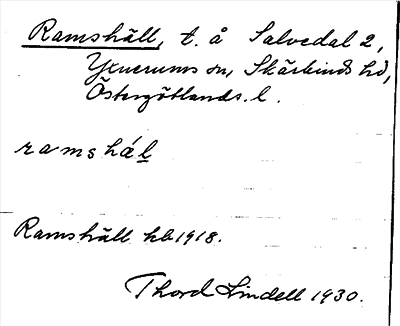 Ramshäll, t. å Salvedal 2,
Yxnerums sn, Skärkinds hd,
Östergötlands l.
ramshál
Ramshäll hb 1918.
Thord Lindell 1930.